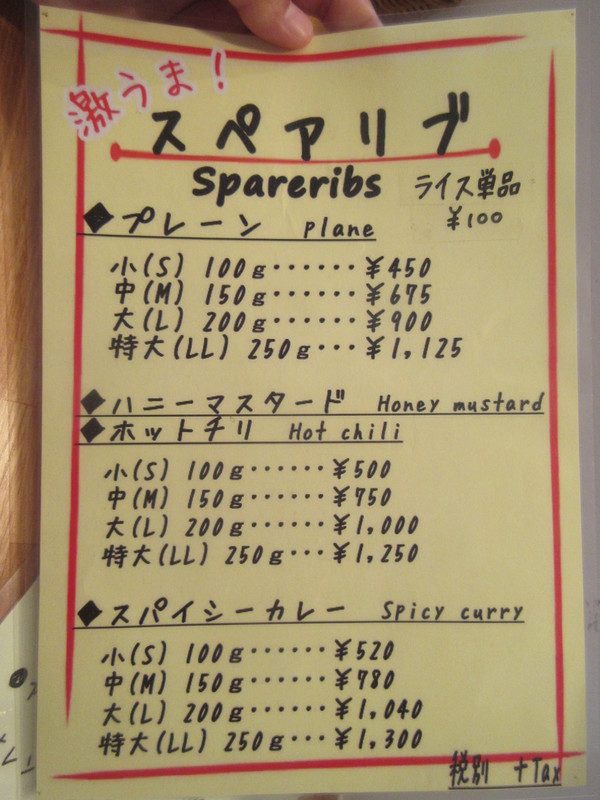 激うま！
スペアリブ
Spareribs
ライス単品
¥100
◆プレーン Plane
小(S) 100g……¥450
中(M) 150g……¥675
大(L) 200g……¥900
特大(LL) 250g…¥1,125
◆ハニーマスタード Honey mustard
◆ホットチリ Hot chili
小(S) 100g……¥500
中(M) 150g……¥750
大(L) 200g……¥1,000
特大(LL) 250g…¥1,250
◆スパイシーカレー Spicy curry
小(S) 100g……¥520
中(M) 150g……¥780
大(L) 200g……¥1,040
特大(LL) 250g…¥1,300
税別 +Tax